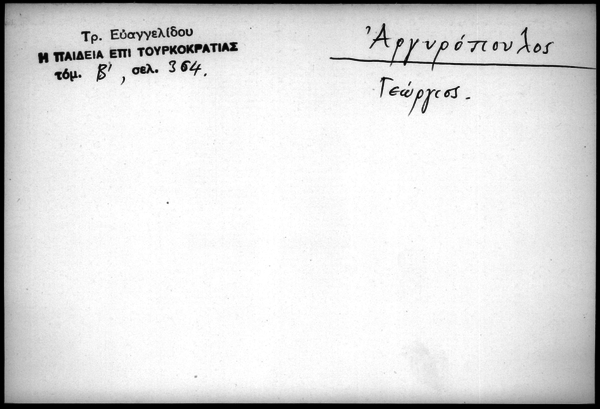 Τρ. Εὐαγγελίδου
Η ΠΑΙΔΕΙΑ ΕΠΙ ΤΟΥΡΚΟΚΡΑΤΙΑΣ
τόμ. Β', σελ. 364.
Ἀργυρόπουλος
Γεώργιος.